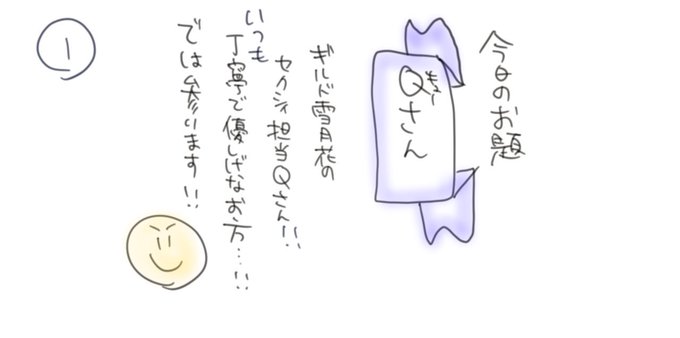 今日のお題
Qさん
キュー
ギルド雪月花の
セクシィ担当Qさん!!
いつも
丁寧で優しげなお方…!!
では参ります!!
1